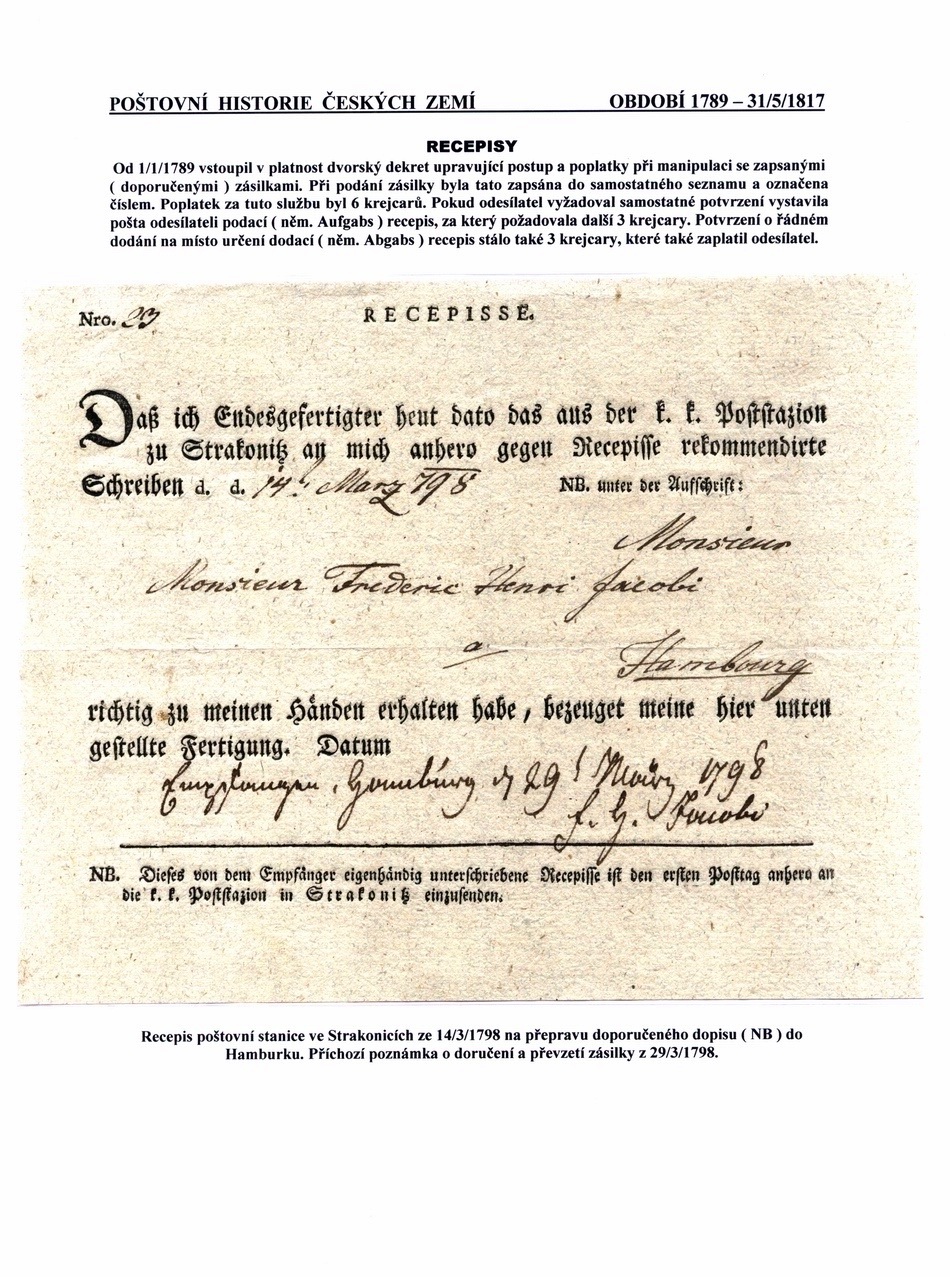 POŠTOVNÍ HISTORIE ČESKÝCH ZEMÍ OBDOBÍ 1789 – 31/5/1817
RECEPISY
Od 1/1/1789 vstoupil v platnost dvorský dekret upravující postup a poplatky při manipulaci se zapsanými
( doporučenými ) zásilkami. Při podání zásilky byla tato zapsána do samostatného seznamu a označena
číslem. Poplatek za tuto službu byl 6 krejcarů. Pokud odesílatel vyžadoval samostatné potvrzení vystavila
pošta odesílateli podací ( něm. Aufgabs ) recepis, za který požadovala další 3 krejcary. Potvrzení o řádném
dodání na místo určení dodací ( něm. Abgabs ) recepis stálo také 3 krejcary, které také zaplatil odesílatel.
Nro. 23 RECEPISSE.
Daß ich Endesgefertigter heut dato das aus der k. k. Poststazion
zu Strakonitz an mich anhero gegen Recepisse rekommendirte
Schreiben d. d. 14t März 798 NB. unter der Aufschrift:
Monsieur
Monsieur Frederic Henri Jacobi
a Hambourg
richtig zu meinen Händen erhalten habe, bezeuget meine hier unten
gestellte Fertigung. Datum
Empfangen, Hamburg d 29t März 1798
F. H. Jacobi
NB. Dieses von dem Empfänger eigenhändig unterschriebene Recepisse ist den ersten Posttag anhero an
die k. k. Poststazion in Strakonitz einzusenden.
Recepis poštovní stanice ve Strakonicích ze 14/3/1798 na přepravu doporučeného dopisu ( NB ) do
Hamburku. Příchozí poznámka o doručení a převzetí zásilky z 29/3/1798.